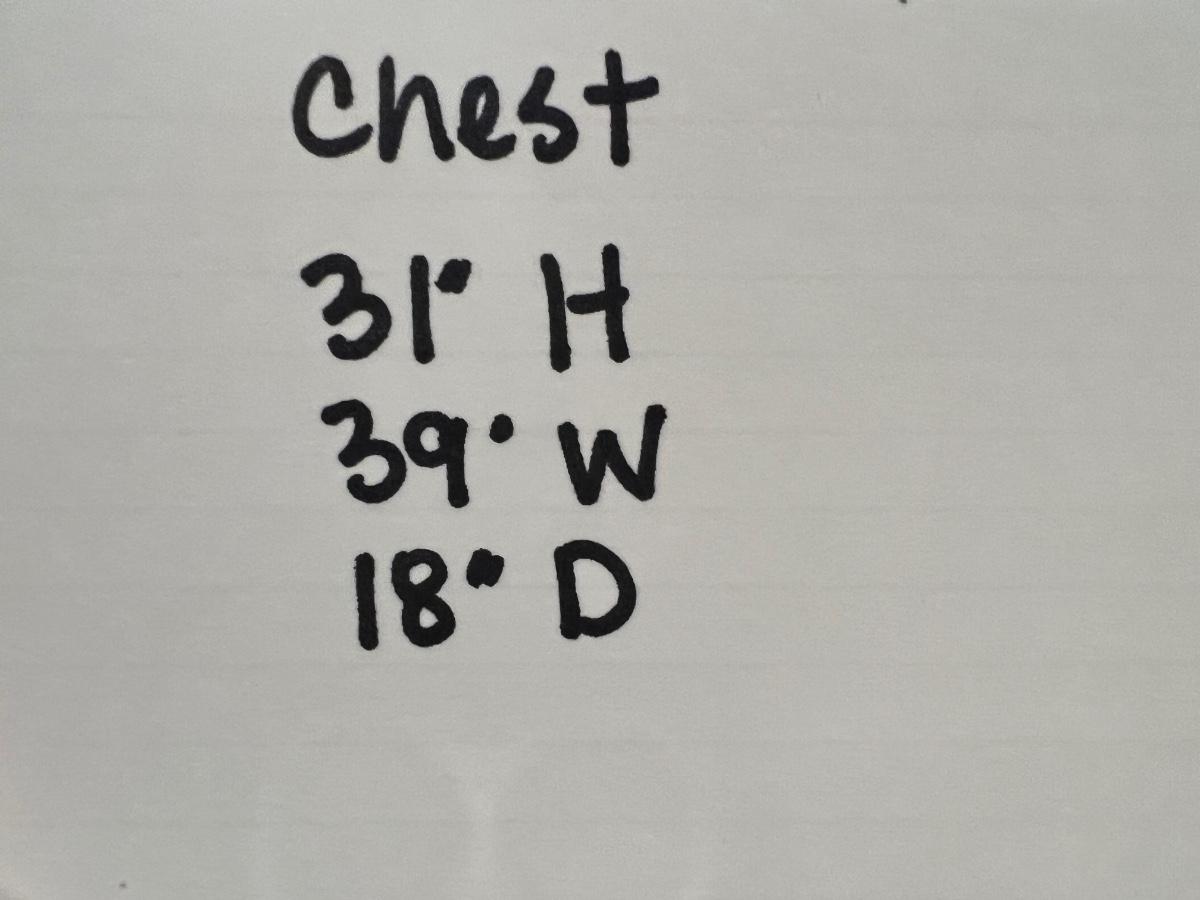 Chest
31" H
39" W
18" D